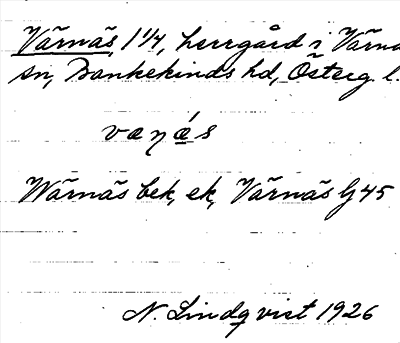 Värnäs, 1 1/4, herrgård i Värna
sn, Bankekinds hd, Österg. l.
væṇǽs
Wärnäs bek, ek, Värnäs G 45
N. Lindqvist 1926